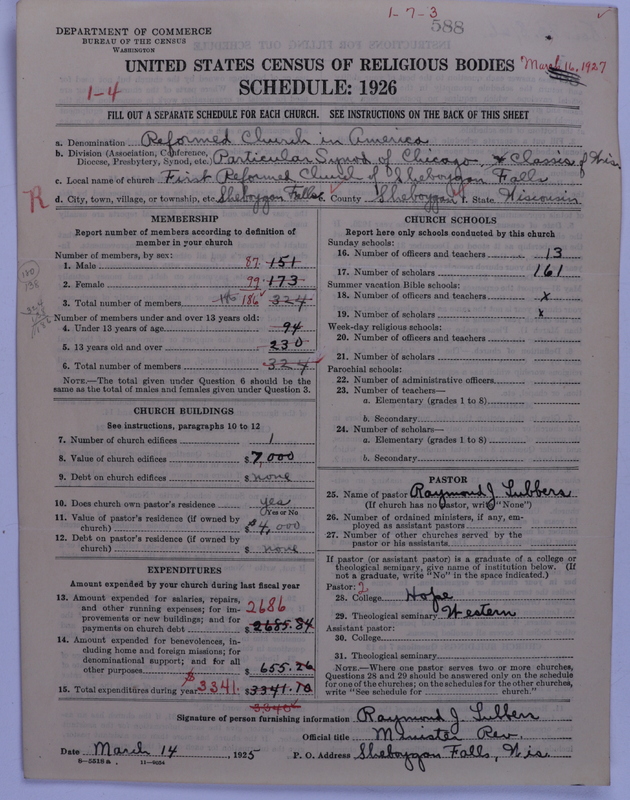 1-7-3
588
DEPARTMENT OF COMMERCE
BUREAU OF THE CENSUS
WASHINGTON
UNITED STATES CENSUS OF RELIGIOUS BODIES
March 16, 1927
1-4
SCHEDULE: 1926
FILL OUT A SEPARATE SCHEDULE FOR EACH CHURCH. SEE INSTRUCTIONS ON THE BACK OF THIS SHEET
a. Denomination Reformed Church in America
b. Division (Association, Conference, Diocese, Presbytery, Synod, etc.) Particular Synod of Chicago, & Classis of Wis.
c. Local name of church First Reformed Church of Sheboygan Falls
R
d. City, town, village, or township, etc. Sheboygan Falls e. County Sheboygan f. State Wisconsin
MEMBERSHIP
Report number of members according to definition of
member in your church
Number of members, by sex:
1. Male 87 151
2. Female 99 173
3. Total number of members 186 324
Number of members under and over 13 years old:
4. Under 13 years of age 94
5. 13 years old and over 230
6. Total number of members 324
NOTE.—The total given under Question 6 should be the
same as the total of males and females given under Question 3.
CHURCH BUILDINGS
See instructions, paragraphs 10 to 12
7. Number of church edifices 1
8. Value of church edifices $7,000
9. Debt on church edifices $none
10. Does church own pastor's residence yes
Yes or No
11. Value of pastor's residence (if owned by
church) $4,000
12. Debt on pastor's residence (if owned by
church) $ none
EXPENDITURES
Amount expended by your church during last fiscal year
13. Amount expended for salaries, repairs,
and other running expenses; for im-
provements or new buildings; and for
payments on church debt 2686 $2685.84
14. Amount expended for benevolences, in-
cluding home and foreign missions; for
denominational support; and for all
other purposes $655.26
15. Total expenditures during year $3341. $3341.10
CHURCH SCHOOLS
Report here only schools conducted by this church
Sunday schools:
16. Number of officers and teachers 13
17. Number of scholars 161
Summer vacation Bible schools:
18. Number of officers and teachers x
19. Number of scholars x
Week-day religious schools:
20. Number of officers and teachers
21. Number of scholars
Parochial schools:
22. Number of administrative officers
23. Number of teachers—
a. Elementary (grades 1 to 8)
b. Secondary
24. Number of scholars—
a. Elementary (grades 1 to 8)
b. Secondary
PASTOR
25. Name of pastor Raymond J. Lubbers
(If church has no pastor, write "None")
26. Number of ordained ministers, if any, em-
ployed as assistant pastors
27. Number of other churches served by the
pastor or his assistants
If pastor (or assistant pastor) is a graduate of a college or
theological seminary, give name of institution below. (If
not a graduate, write "No" in the space indicated.)
Pastor: 2
28. College Hope
29. Theological seminary Western
Assistant pastor:
30. College
31. Theological seminary
NOTE.—Where one pastor serves two or more churches,
Questions 28 and 29 should be answered only on the schedule
for one of the churches; on the schedules for the other churches,
write "See schedule for church."
Signature of person furnishing information Raymond J. Lubbers
Official title Minister Rev.
Date March 14, 1925 P. O. Address Sheboygan Falls, Wis.
8-5518a 11-9034